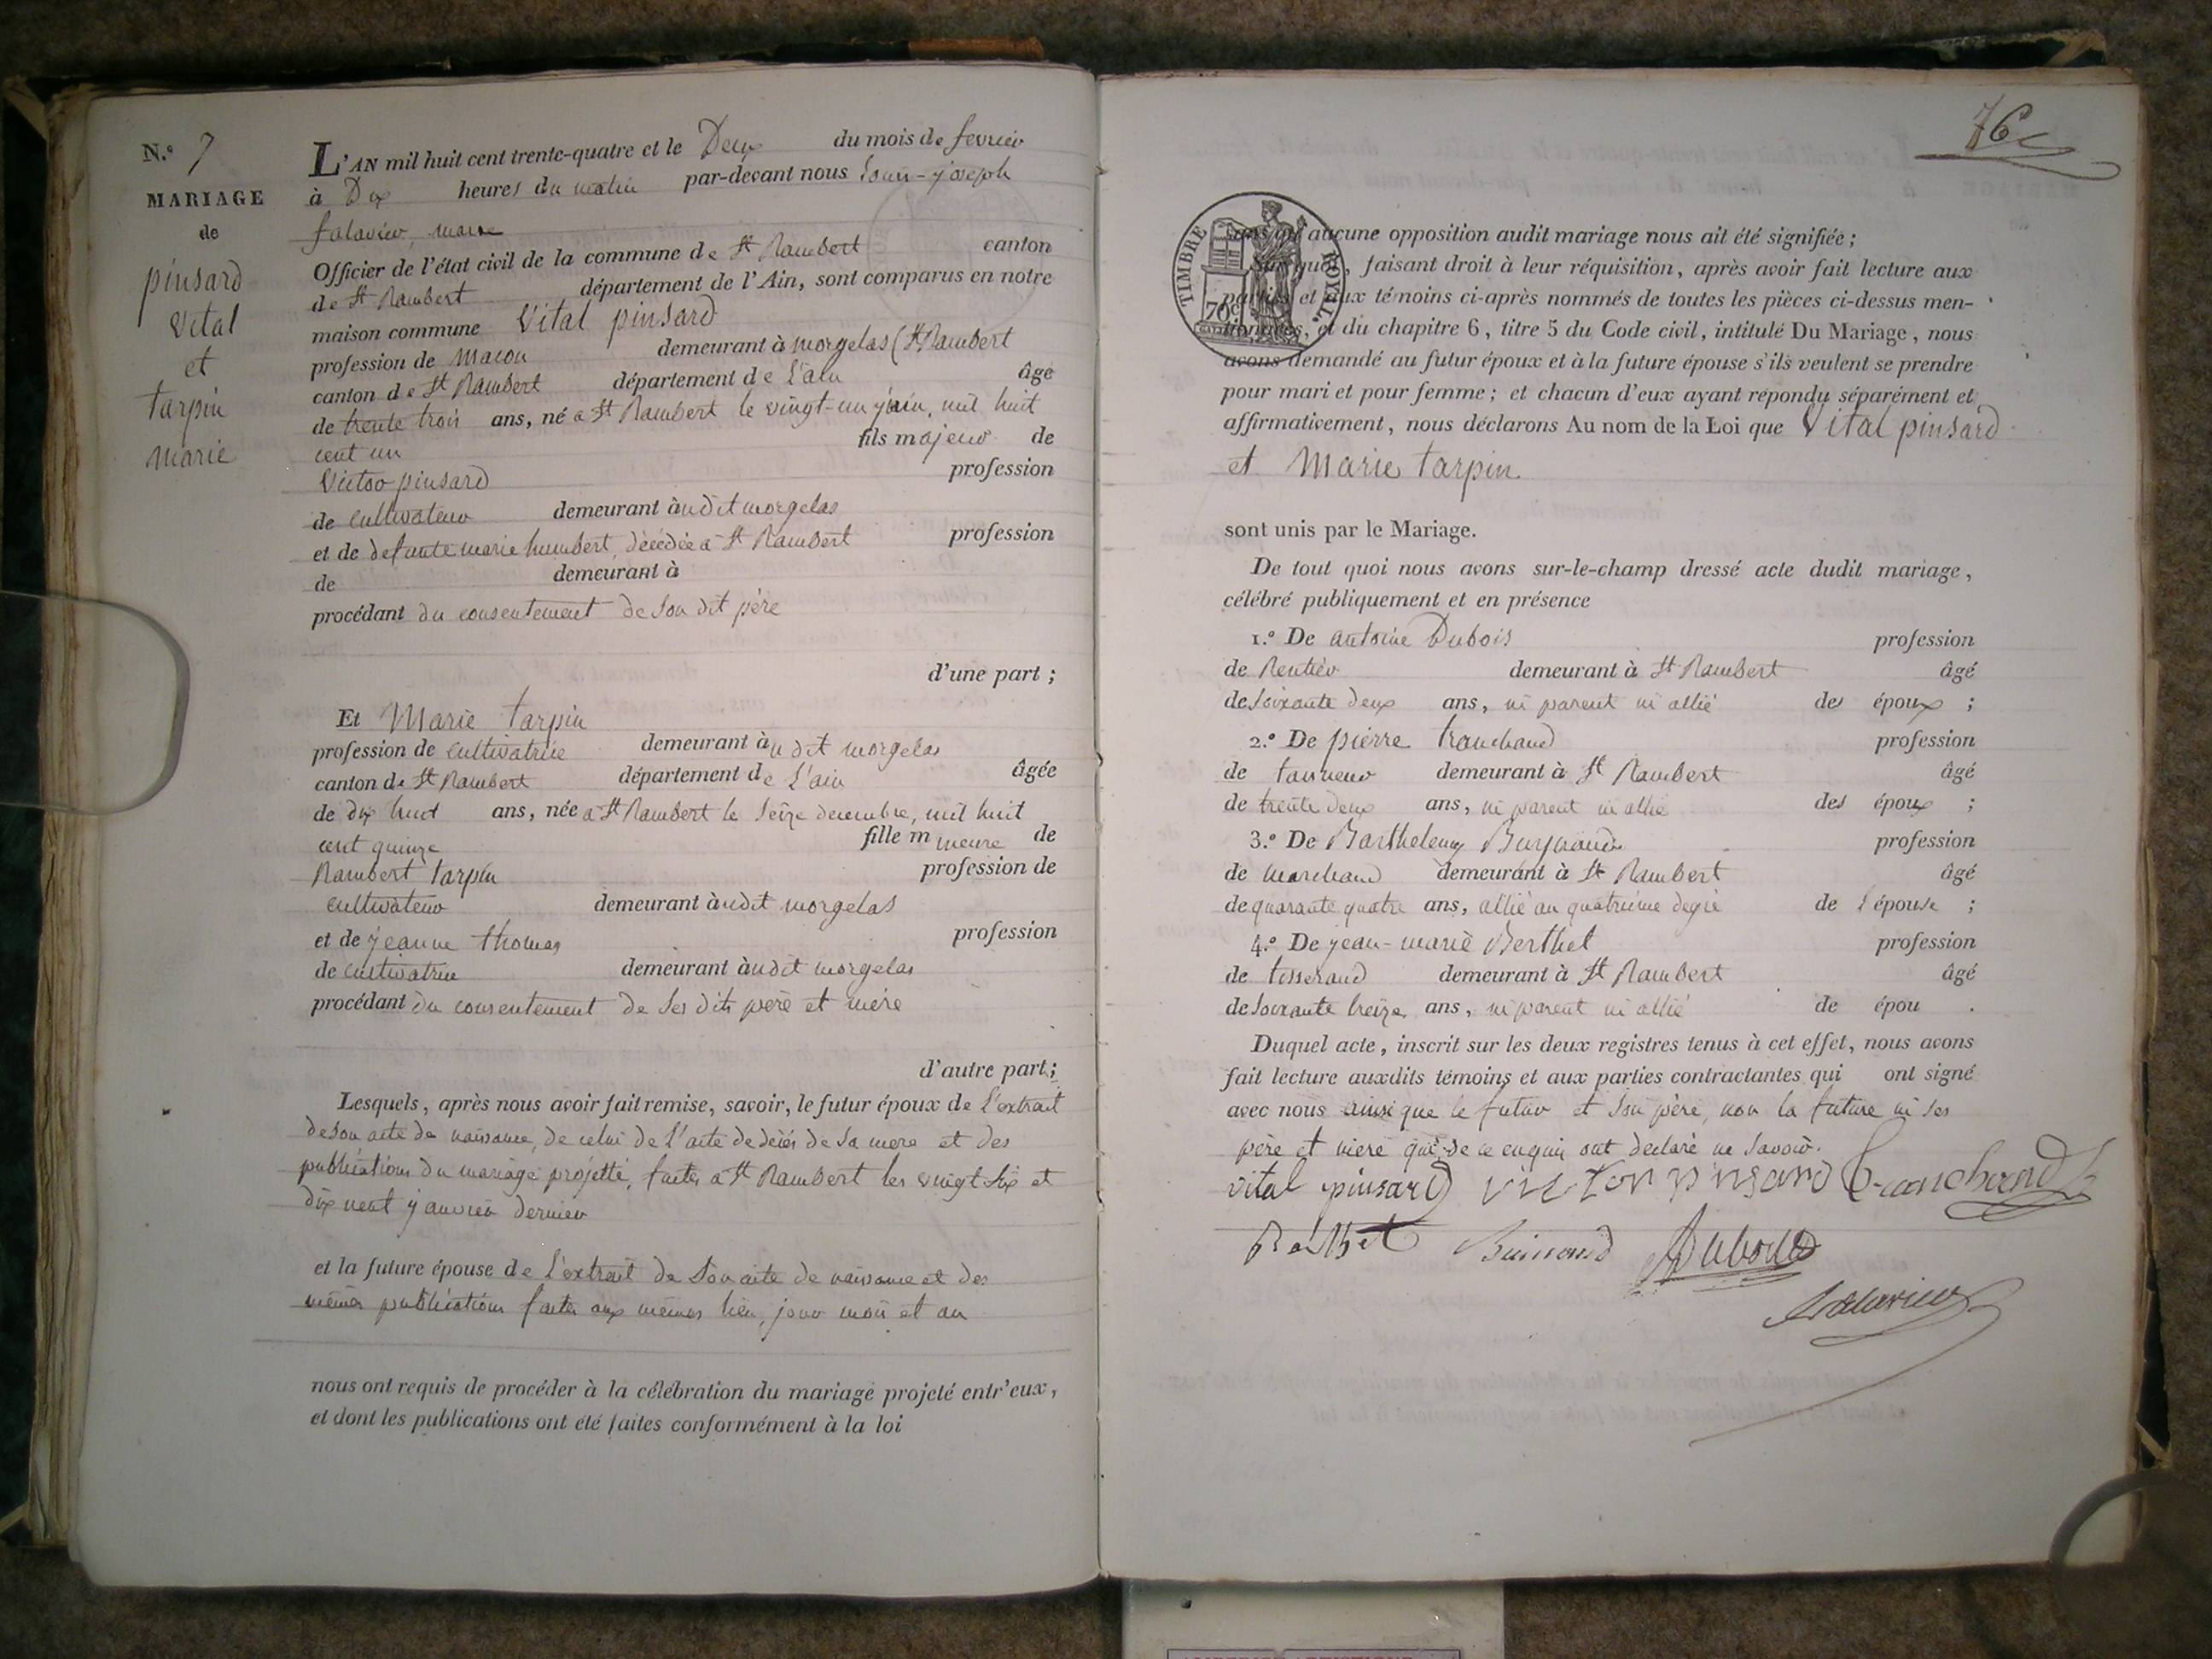 N.º 7
MARIAGE
de
pinsard
vital
et
tarpin
marie
L'AN mil huit cent trente-quatre et le Deux du mois de fevrier
à Dix heures du matin par-devant nous Louis-joseph
falavier, maire
Officier de l'état civil de la commune de St Rambert canton
de St Rambert département de l'Ain, sont comparus en notre
maison commune Vital pinsard
profession de Macon demeurant à morgelas (St Rambert
canton de St Rambert département de L'ain âgé
de trente trois ans, né a St Rambert le vingt-un juin, mil huit
cent un fils majeur de
Victor pinsard profession
de cultivateur demeurant àudit morgelas
et de defunte marie humbert, décédée a St Rambert profession
de demeurant à
procédant du consentement de Son dit père
d'une part ;
Et Marie tarpin
profession de cultivatrice demeurant àudit morgelas
canton de St Rambert département de L'ain âgée
de dix huit ans, née a St Rambert le Seize decembre, mil huit
cent quinze fille mineure de
Rambert tarpin profession de
cultivateur demeurant àudit morgelas
et de jeanne thomas profession
de cultivatrice demeurant àudit morgelas
procédant du consentement de Ses dits père et mère
d'autre part ;
Lesquels, après nous avoir fait remise, savoir, le futur époux de L'extrait
de Son acte de naissance, de celui de L'acte de décès de Sa mere et des
publications du mariage projetté, faites a St Rambert les vingt Six et
dix neuf janvier dernier
et la future épouse de L'extrait de Son acte de naissance et des
mêmes publications faites aux mêmes lieu, jour mois et an
nous ont requis de procéder à la célébration du mariage projeté entr'eux,
et dont les publications ont été faites conformément à la loi
76
TIMBRE ROYAL
70c
sans qu'aucune opposition audit mariage nous ait été signifiée ;
Sur quoi, faisant droit à leur réquisition, après avoir fait lecture aux
parties et aux témoins ci-après nommés de toutes les pièces ci-dessus men-
tionnées, et du chapitre 6, titre 5 du Code civil, intitulé Du Mariage, nous
avons demandé au futur époux et à la future épouse s'ils veulent se prendre
pour mari et pour femme ; et chacun d'eux ayant répondu séparément et
affirmativement, nous déclarons Au nom de la Loi que Vital pinsard
et Marie tarpin
sont unis par le Mariage.
De tout quoi nous avons sur-le-champ dressé acte dudit mariage,
célébré publiquement et en présence
1.º De antoine Dubois profession
de Rentier demeurant à St Rambert âgé
de Soixante deux ans, ni parent ni allié des époux ;
2.º De pierre tranchand profession
de tanneur demeurant à St Rambert âgé
de trente deux ans, ni parent ni allié des époux ;
3.º De Barthelemy profession
de marchand demeurant à St Rambert âgé
de quarante quatre ans, allié au quatrieme degré de L'épouse ;
4.º De jean-marie Berthet profession
de tisserand demeurant à St Rambert âgé
de Soixante treize ans, ni parent ni allié de épou .
Duquel acte, inscrit sur les deux registres tenus à cet effet, nous avons
fait lecture auxdits témoins et aux parties contractantes qui ont signé
avec nous ainsi que le futur et Son père, non la future ni Ses
père et mère qui de ce enquis ont declaré ne Savoir.
vital pinsard victor pinsard tranchand
Dubois
falavier